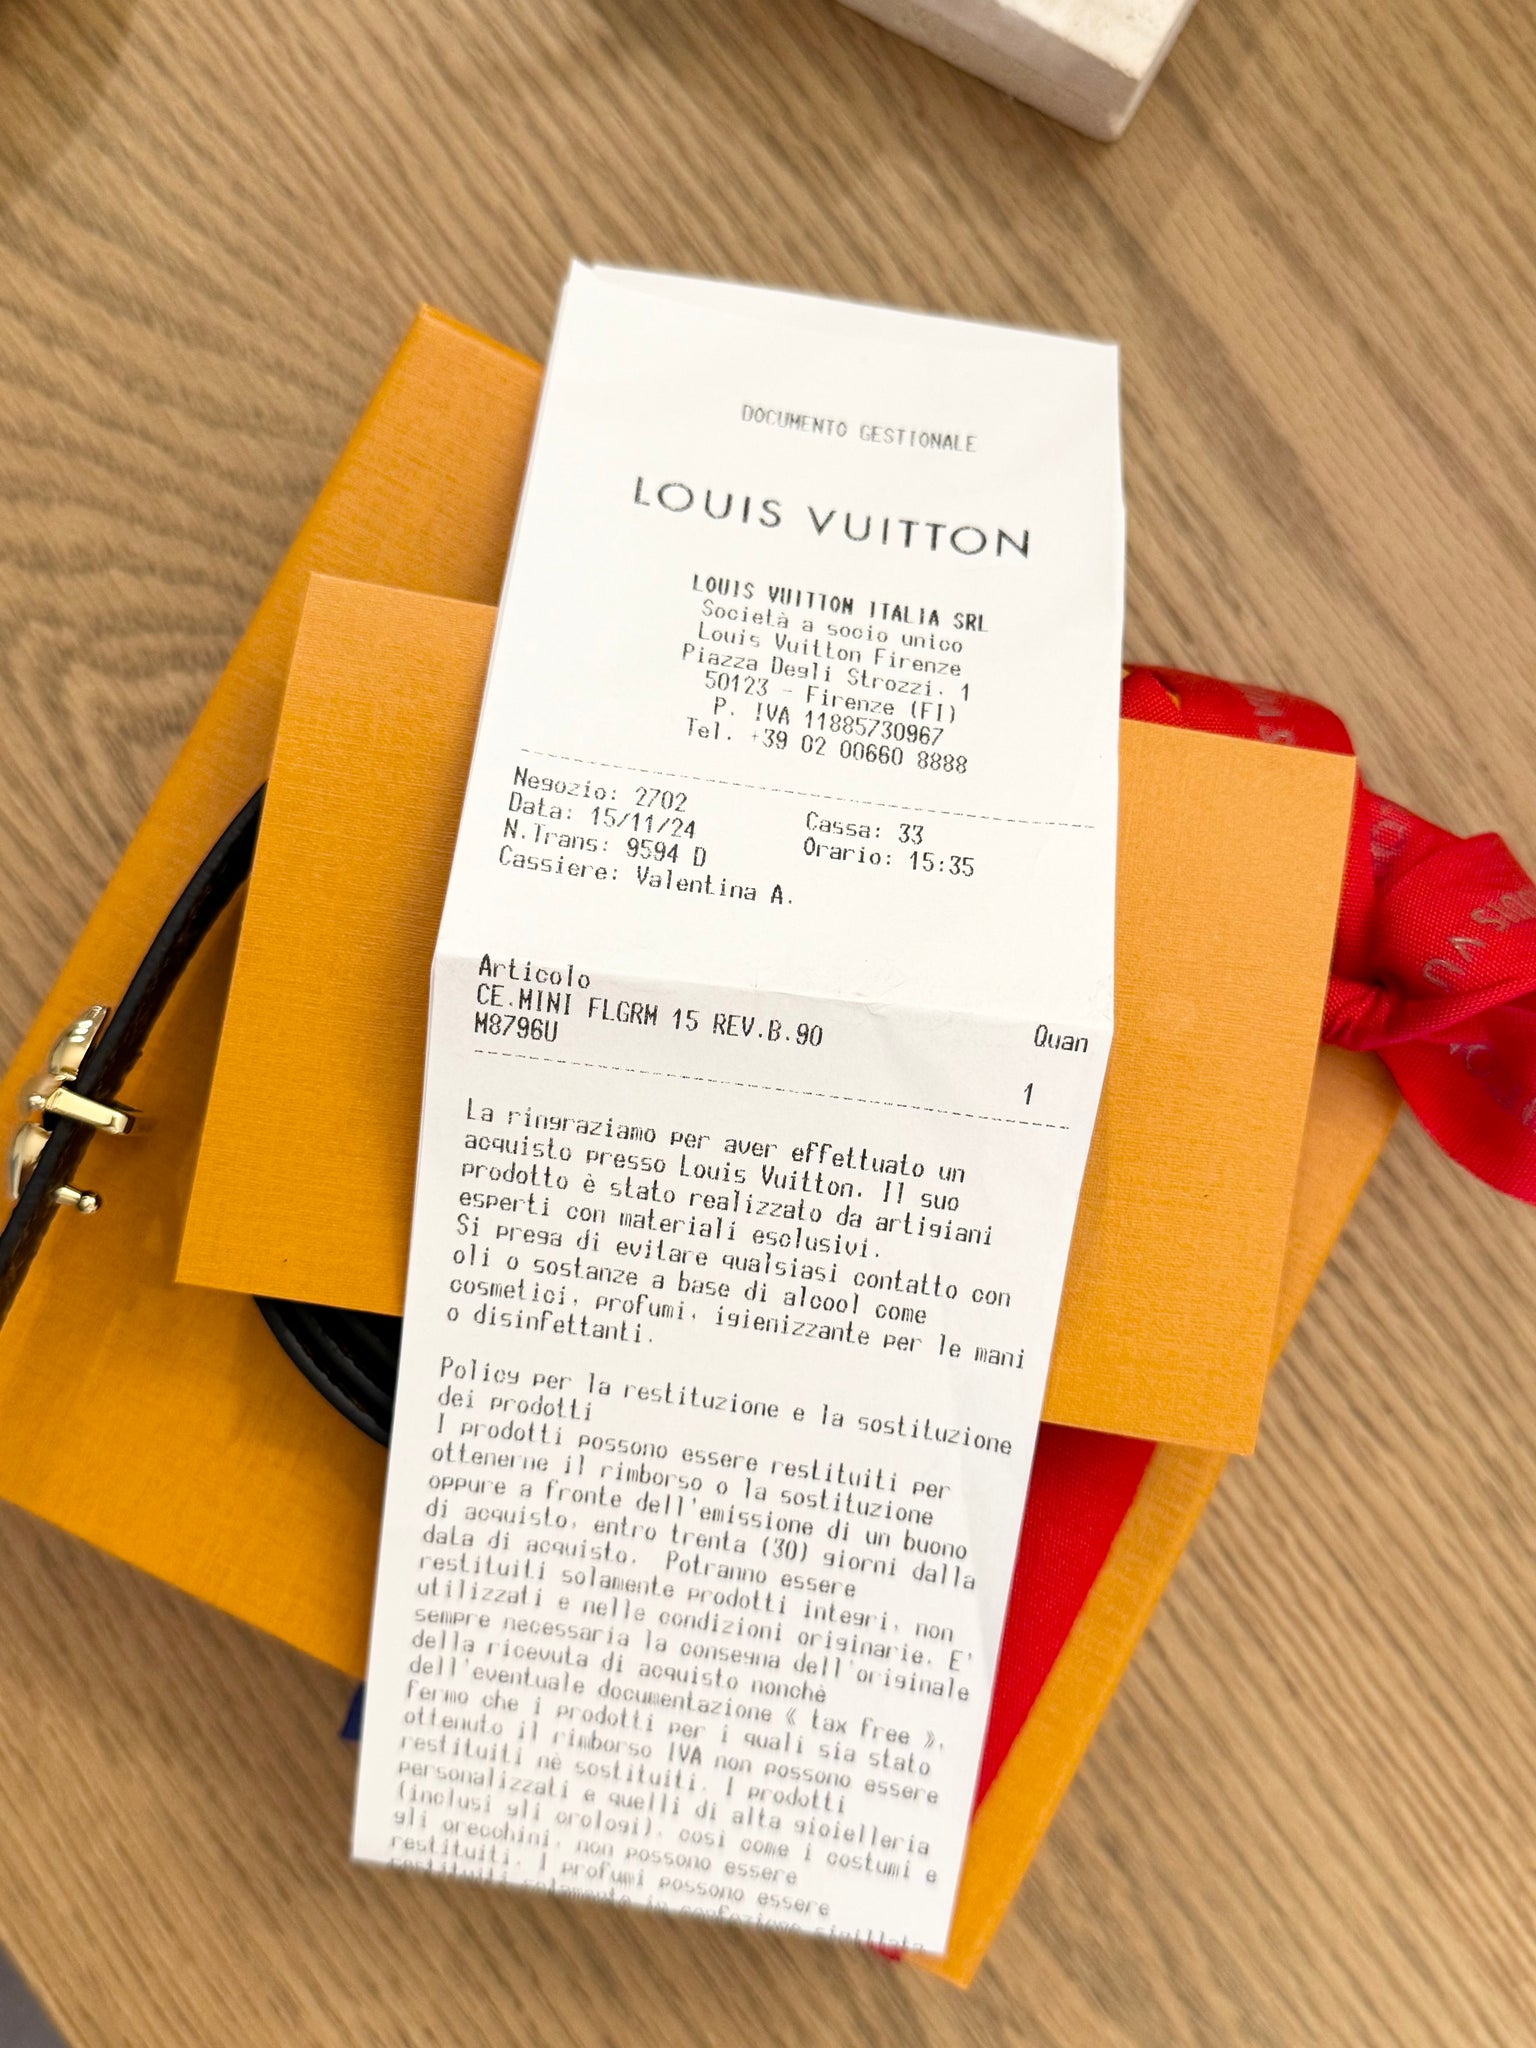 DOCUMENTO GESTIONALE
LOUIS VUITTON
LOUIS VUITTON ITALIA SRL
Società a socio unico
Louis Vuitton Firenze
Piazza Degli Strozzi, 1
50123 - Firenze (FI)
P. IVA 11885730967
Tel. +39 02 00660 8888
Negozio: 2702 Cassa: 33
Data: 15/11/24 Orario: 15:35
N.Trans: 9594 D
Cassiere: Valentina A.
Articolo Quan
CE.MINI FLGRM 15 REV.B.90
M8796U 1
La ringraziamo per aver effettuato un
acquisto presso Louis Vuitton. Il suo
prodotto è stato realizzato da artigiani
esperti con materiali esclusivi.
Si prega di evitare qualsiasi contatto con
oli o sostanze a base di alcool come
cosmetici, profumi, igienizzante per le mani
o disinfettanti.
Policy per la restituzione e la sostituzione
dei prodotti
I prodotti possono essere restituiti per
ottenerne il rimborso o la sostituzione
oppure a fronte dell'emissione di un buono
di acquisto, entro trenta (30) giorni dalla
data di acquisto. Potranno essere
restituiti solamente prodotti integri, non
utilizzati e nelle condizioni originarie. E'
sempre necessaria la consegna dell'originale
della ricevuta di acquisto nonchè
dell'eventuale documentazione « tax free »,
fermo che i prodotti per i quali sia stato
ottenuto il rimborso IVA non possono essere
restituiti nè sostituiti. I prodotti
personalizzati e quelli di alta gioielleria
(inclusi gli orologi), così come i costumi e
gli orecchini, non possono essere
restituiti. I profumi possono essere
restituiti solamente in confezione sigillata